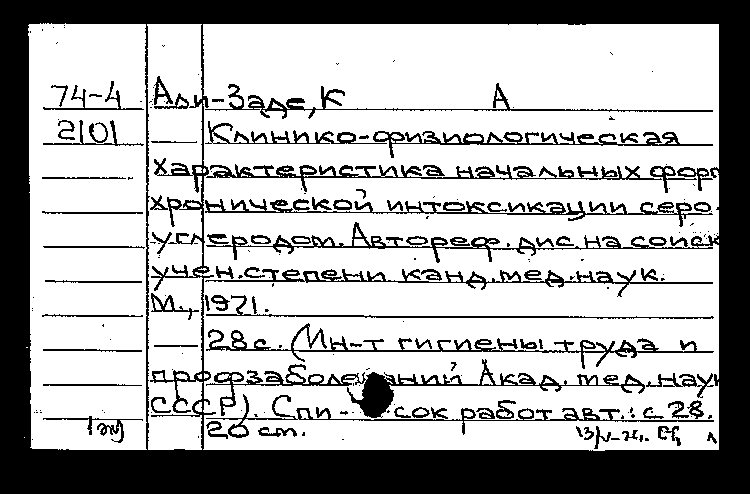 74-4 Али-Заде, К А
2101 Клинико-физиологическая
характеристика начальных форм
хронической интоксикации серо-
углеродом. Автореф. дис. на соиск
учен. степени канд. мед. наук.
М., 1971.
28 с. (Ин-т гигиены труда и
профзаболеваний Акад. мед. наук
СССР). Спи- сок работ авт.: с 28.
20 см.